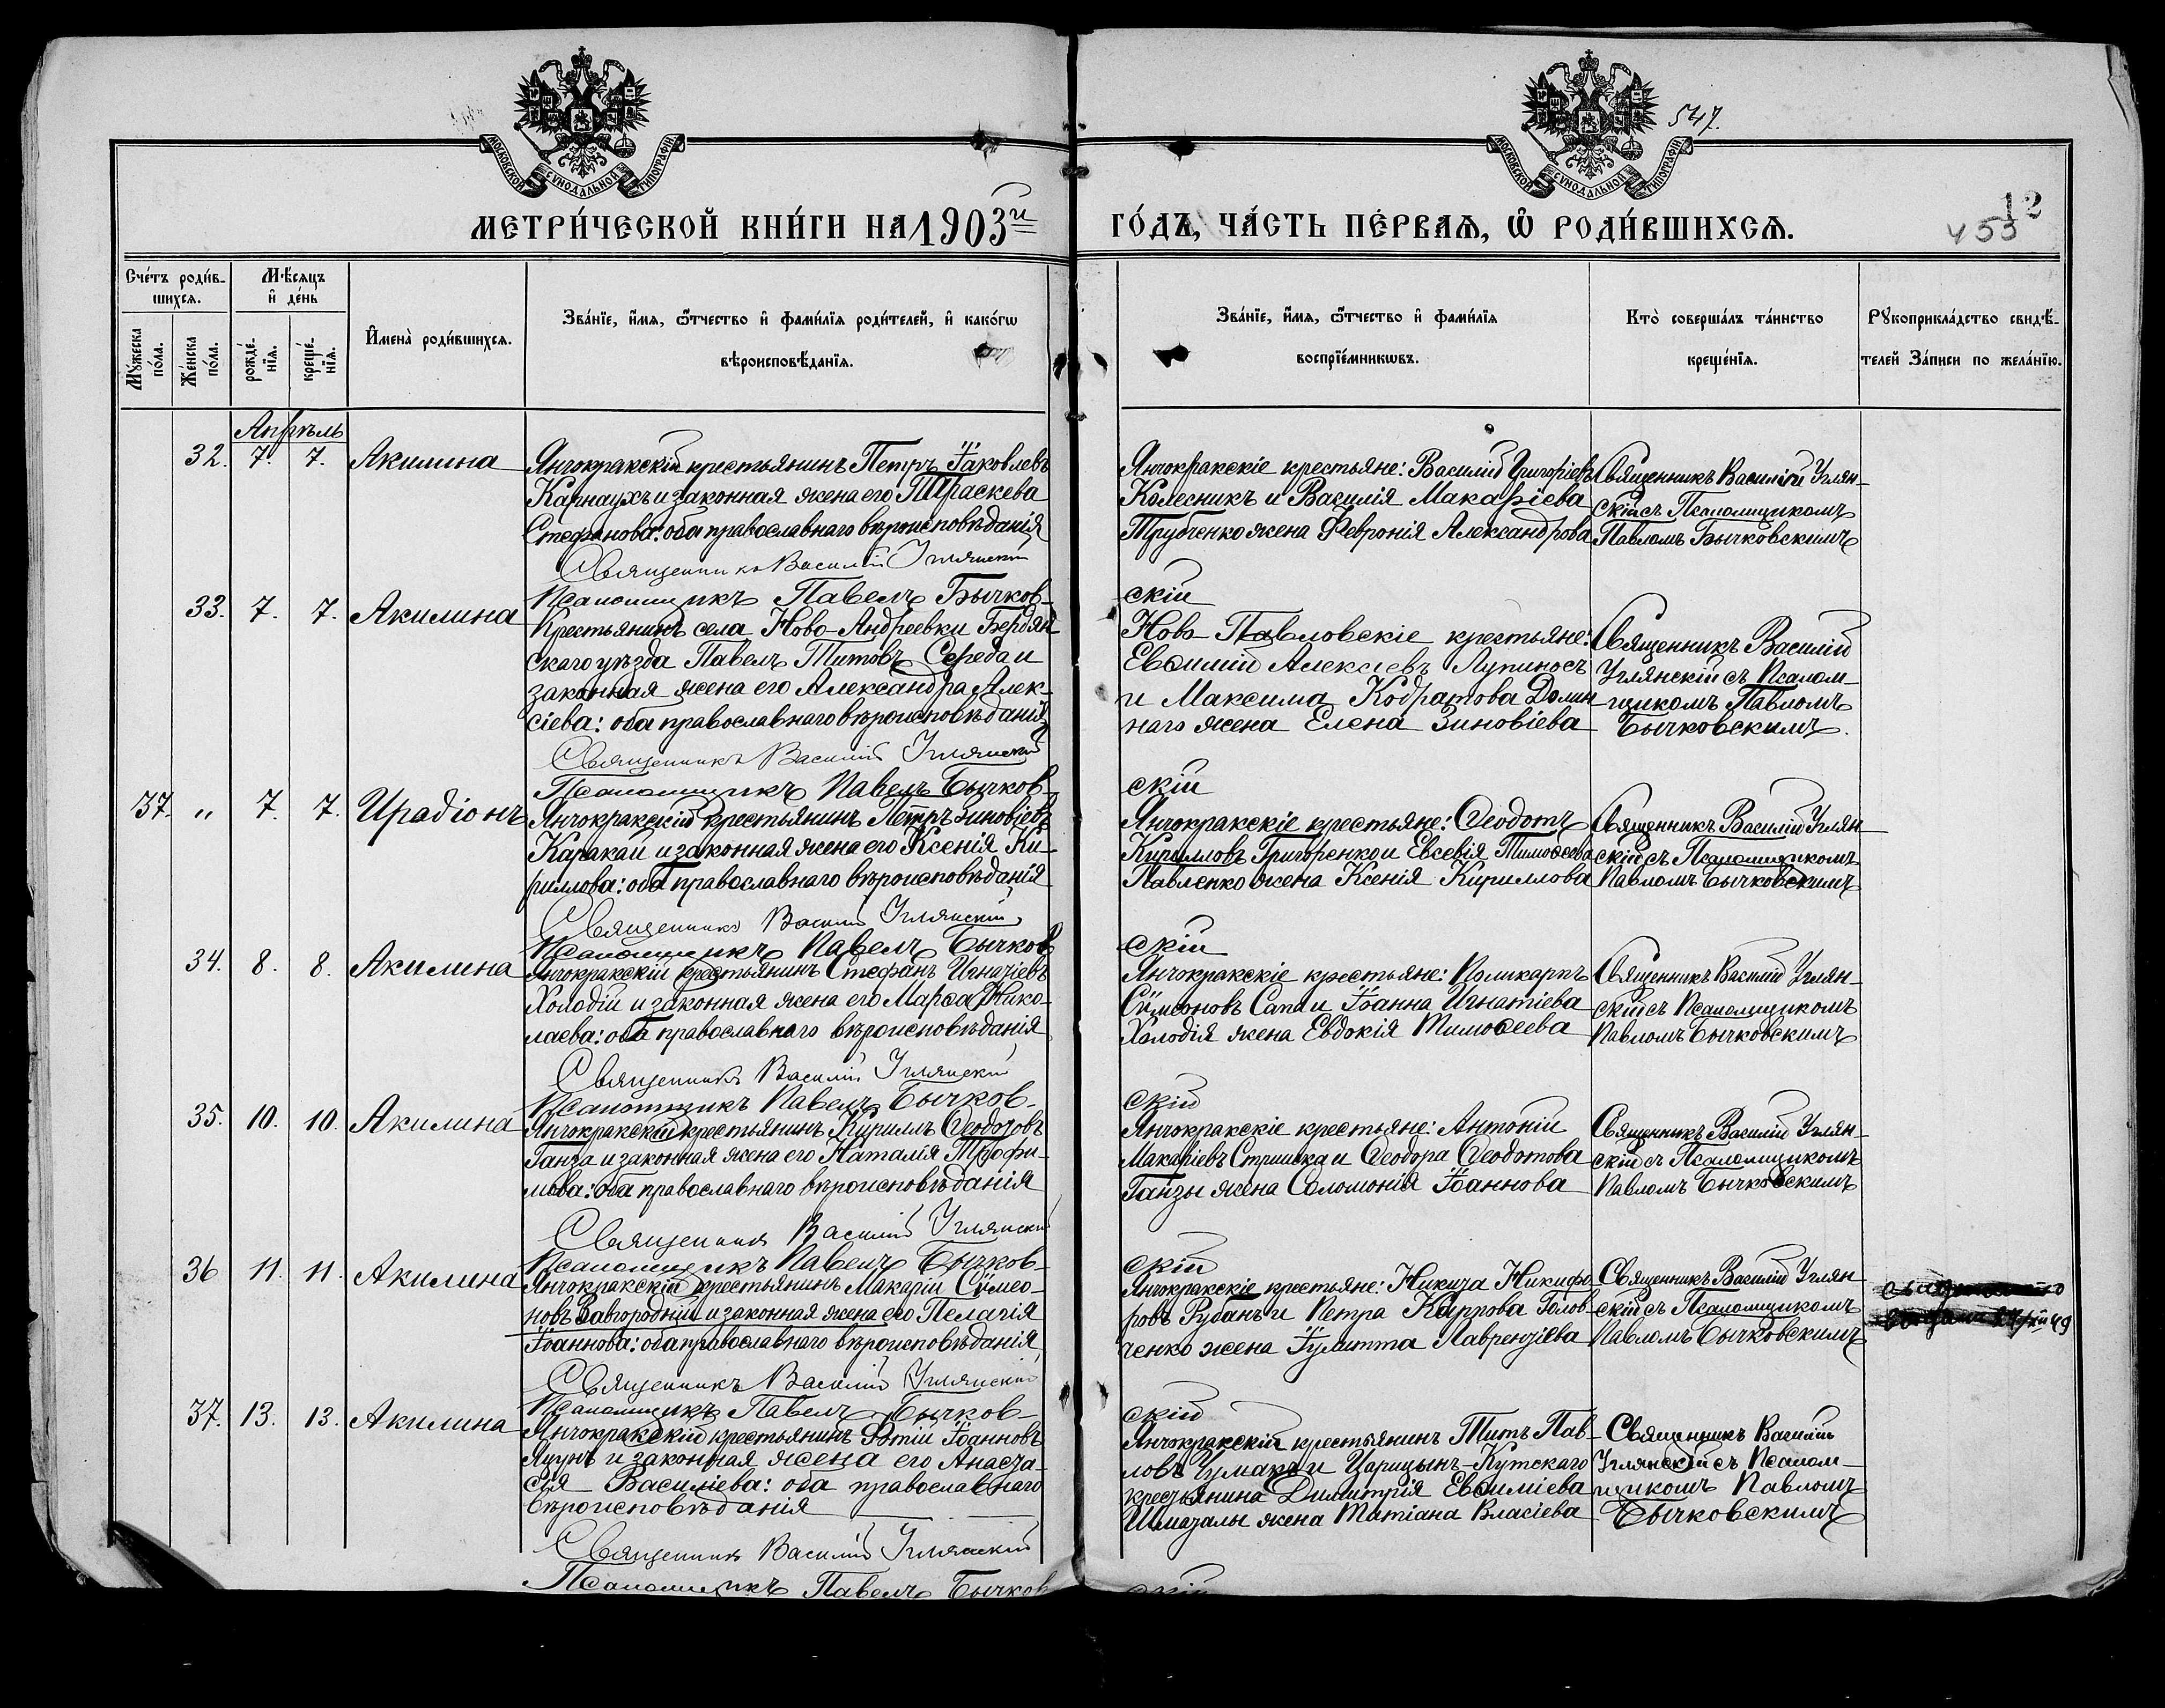 547.
МОСКОВСКОЙ СѴНОДАЛЬНОЙ ТИПОГРАФІИ
МОСКОВСКОЙ СѴНОДАЛЬНОЙ ТИПОГРАФІИ
12
453
МЕТРИ́ЧЕСКОЙ КНИ́ГИ НА 1903й
ГО́ДЪ, ЧА́СТЬ ПЕ́РВАѦ, Ѡ РОДИ́ВШИХСѦ.
Сче́тъ роди́в-
шихсѧ.
Мꙋ́жеска по́ла.
Же́нска по́ла.
Мѣ́сѧцъ
и҆ де́нь
рожде́нїѧ.
креще́нїѧ.
И҆мена̀ роди́вшихсѧ.
Зва́нїе, и҆́мѧ, ѻ҆́тчество и҆ фами́лїѧ роди́телей, и҆ како́гѡ
вѣроисповѣ́данїѧ.
Зва́нїе, и҆́мѧ, ѻ҆́тчество и҆ фами́лїѧ
воспрїе́мникѡвъ.
Кто̀ соверша́лъ та́инство
креще́нїѧ.
Рꙋкоприкла́дство свидѣ́-
телей За́писи по жела́нїю.
Апрѣль
32. 7. 7. Акилина
Янчокракскій крестьянинъ Петръ Іаковлевъ
Карнаухъ и законная жена его Параскева
Стефанова: оба православнаго вѣроисповѣданія
Священникъ Василій Углянскій
Псаломщикъ Павелъ Бычков-
скій
Янчокракскіе крестьяне: Василій Григоріевъ
Колесникъ и Василія Макаріева
Трубченко жена Февронія Александрова
Священникъ Василій Углян-
скій съ Псаломщикомъ
Павломъ Бычковскимъ
33. 7. 7. Акилина
Крестьянинъ села Ново-Андреевки Бердян-
скаго уѣзда Павелъ Титовъ Середа и
законная жена его Александра Алек-
сіева: оба православнаго вѣроисповѣданія
Священникъ Василій Углянскій
Псаломщикъ Павелъ Бычков-
скій
Ново-Павловскіе крестьяне:
Евѳимій Алексіевъ Лупиносъ
и Максима Кодратова Долин-
наго жена Елена Зиновіева
Священникъ Василій
Углянскій съ Псалом-
щикомъ Павломъ
Бычковскимъ.
37. " 7. 7. Ирадіонъ
Янчокракскій крестьянинъ Петръ Зиновіевъ
Каракай и законная жена его Ксенія Ки-
риллова: оба православнаго вѣроисповѣданія
Священникъ Василій Углянскій
Псаломщикъ Павелъ Бычков-
скій
Янчокракскіе крестьяне: Ѳеодотъ
Кирилловъ Григоренко и Евсевія Тимоѳеева
Павленко жена Ксенія Кириллова
Священникъ Василій Углян-
скій съ Псаломщикомъ
Павломъ Бычковскимъ
34. 8. 8. Акилина
Янчокракскій крестьянинъ Стефанъ Игнатіевъ
Холодій и законная жена его Марѳа Нико-
лаева: оба православнаго вѣроисповѣданія
Священникъ Василій Углянскій
Псаломщикъ Павелъ Бычков-
скій
Янчокракскіе крестьяне: Поликарпъ
Сѵмеоновъ Сапа и Іоанна Игнатіева
Холодія жена Евдокія Тимоѳеева
Священникъ Василій Углян-
скій съ Псаломщикомъ
Павломъ Бычковскимъ
35. 10. 10. Акилина
Янчокракскій крестьянинъ Кириллъ Ѳеодотовъ
Ганза и законная жена его Наталія Трофи-
мова: оба православнаго вѣроисповѣданія
Священникъ Василій Углянскій
Псаломщикъ Павелъ Бычков-
скій
Янчокракскіе крестьяне: Антоній
Макаріевъ Стришка и Ѳеодора Ѳеодотова
Ганзы жена Соломонія Іоаннова
Священникъ Василій Углян-
скій съ Псаломщикомъ
Павломъ Бычковскимъ
36 11. 11. Акилина
Янчокракскій крестьянинъ Макарій Сѵмео-
новъ Завгородній и законная жена его Пелагія
Іоаннова: оба православнаго вѣроисповѣданія
Священникъ Василій Углянскій
Псаломщикъ Павелъ Бычков-
скій
Янчокракскіе крестьяне: Никита Никифо-
ровъ Рубанъ и Петра Карпова Голов-
ченко жена Іулитта Лаврентіева
Священникъ Василій Углян-
скій съ Псаломщикомъ
Павломъ Бычковскимъ
37. 13. 13. Акилина
Янчокракскій крестьянинъ Фотій Іоанновъ
Яцунъ и законная жена его Анаста-
сія Василіева: оба православнаго
вѣроисповѣданія
Священникъ Василій Углянскій
Псаломщикъ Павелъ Бычков
скій
Янчокракскій крестьянинъ Титъ Пав-
ловъ Чумакъ и Царицынъ-Кутскаго
крестьянина Димитрія Евѳиміева
Шматалы жена Татіана Власіева
Священникъ Василій
Углянскій съ Псалом-
щикомъ Павломъ
Бычковскимъ